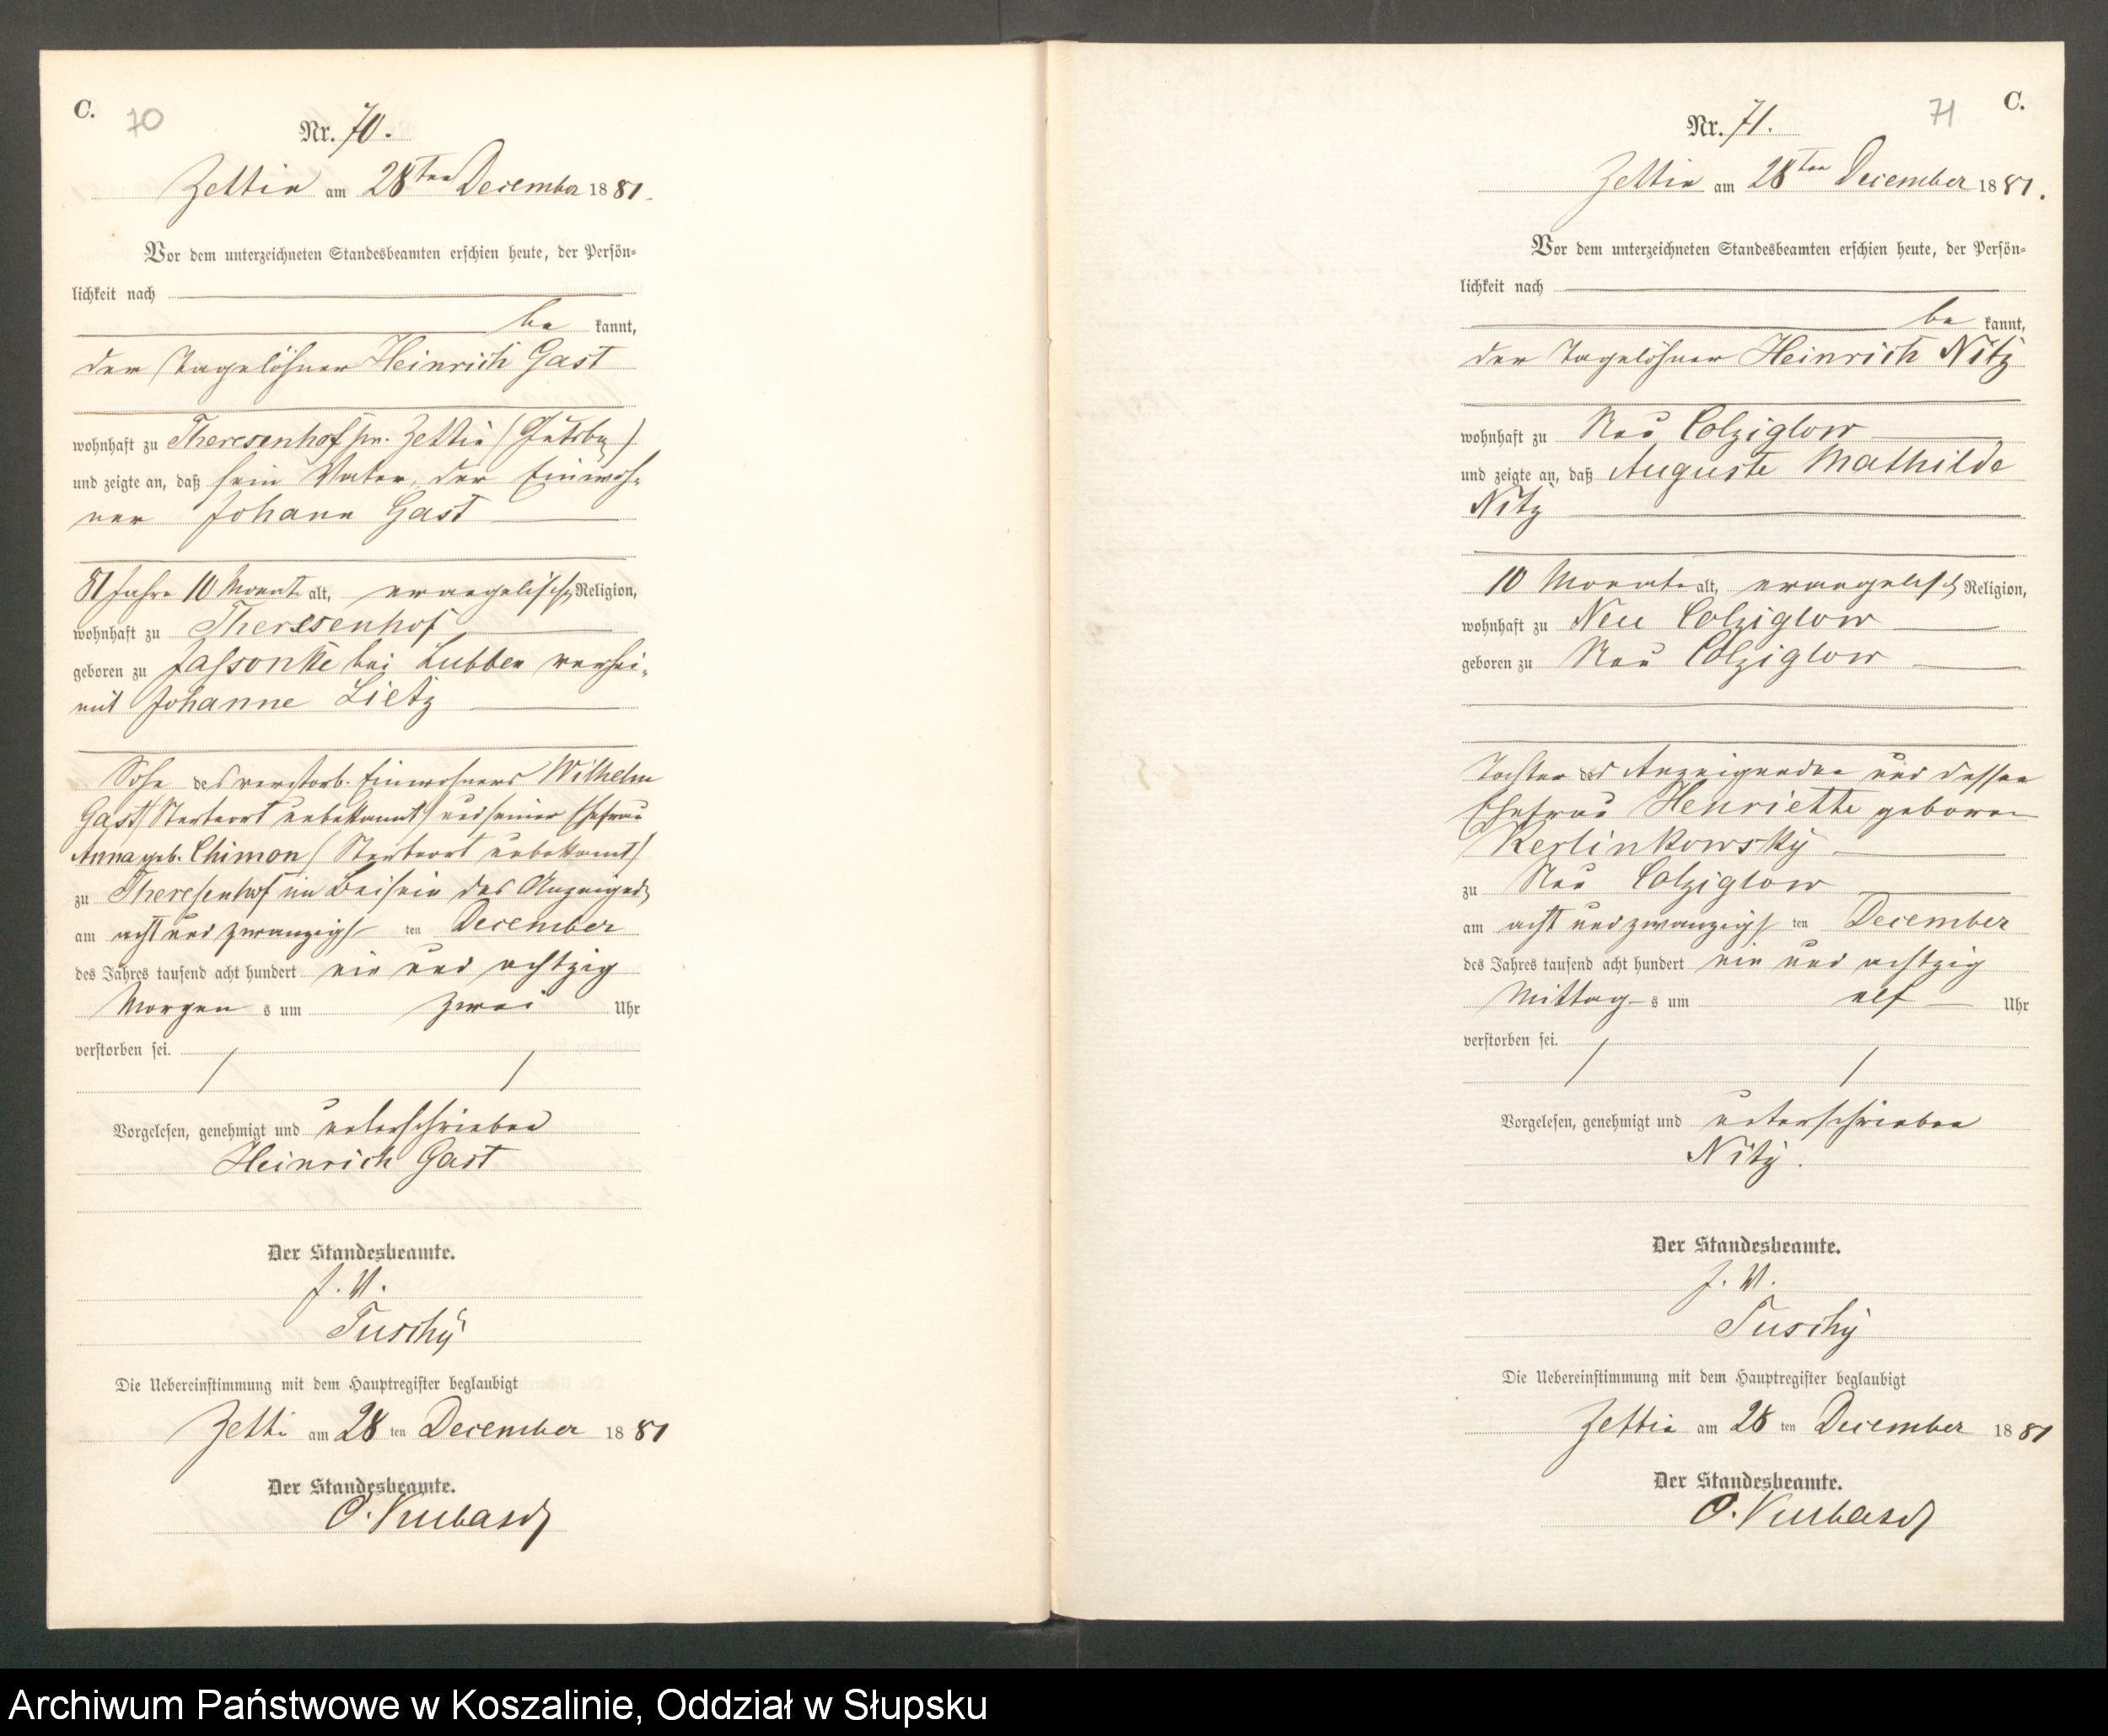 C. 70
Nr. 70.
Zettin am 28ten December 1881.
Vor dem unterzeichneten Standesbeamten erschien heute, der Persön=
lichkeit nach
be kannt,
der Tagelöhner Heinrich Gast
wohnhaft zu Theresenhof pr. Zettin (Gutsbz)
und zeigte an, daß sein Vater, der Einwoh=
ner Johann Gast
81 Jahre 10 Monate alt, evangelischer Religion,
wohnhaft zu Theresenhof
geboren zu Jassonke bei Lubben verhei=
rat Johanne Lietz
Sohn des verstorb. Einwohners Wilhelm
Gast (Sterbeort unbekannt) und seiner Ehefrau
Anna geb. Chimon (Sterbeort unbekannt)
zu Theresenhof im Beisein des Anzeigend
am acht und zwanzigs ten December
des Jahres tausend acht hundert ein und achtzig
Morgen s um zwei Uhr
verstorben sei.
Vorgelesen, genehmigt und unterschrieben
Heinrich Gast
Der Standesbeamte.
J. V.
Tuschÿ
Die Uebereinstimmung mit dem Hauptregister beglaubigt
Zetti am 28 ten December 1881
Der Standesbeamte.
O. Kubasch
71 C.
Nr. 71.
Zettin am 28ten December 1881.
Vor dem unterzeichneten Standesbeamten erschien heute, der Persön=
lichkeit nach
be kannt,
der Tagelöhner Heinrich Nitz
wohnhaft zu Neu Colziglow
und zeigte an, daß Auguste Mathilde
Nitz
10 Monate alt, evangelisch Religion,
wohnhaft zu Neu Colziglow
geboren zu Neu Colziglow
Tochter des Anzeigenden und dessen
Ehefrau Henriette geboren
Kerlinkowsky
zu Neu Colziglow
am acht und zwanzigs ten December
des Jahres tausend acht hundert ein und achtzig
Mittag s um elf Uhr
verstorben sei.
Vorgelesen, genehmigt und unterschrieben
Nitz.
Der Standesbeamte.
J. V.
Tuschÿ
Die Uebereinstimmung mit dem Hauptregister beglaubigt
Zettin am 28 ten December 1881
Der Standesbeamte.
O. Kubasch
Archiwum Państwowe w Koszalinie, Oddział w Słupsku